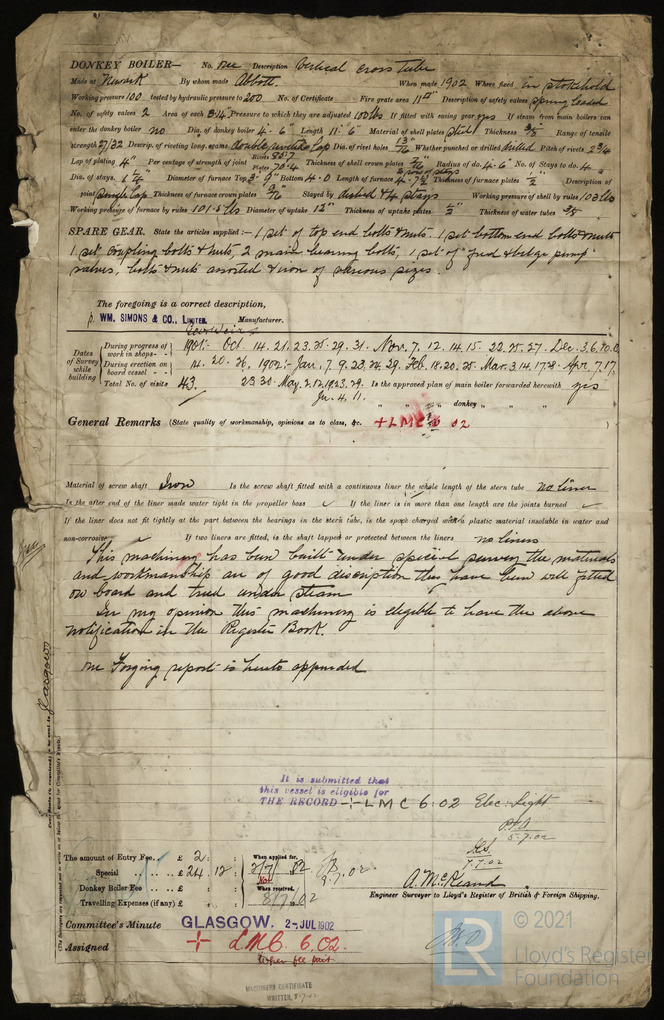 DONKEY BOILER— No. One Description Vertical cross tube
Made at Newark By whom made Abbott. When made 1902 Where fixed in stokehold
Working pressure 100 tested by hydraulic pressure to 200 No. of Certificate Fire grate area 11 Description of safety valves spring loaded
No. of safety valves 2 Area of each 3.14 Pressure to which they are adjusted 100 lbs If fitted with easing gear yes If steam from main boilers can
enter the donkey boiler no Dia. of donkey boiler 4'. 6" Length 11'. 6" Material of shell plates steel Thickness 3/8 Range of tensile
strength 27/32 Descrip. of riveting long. seams double riveted lap Dia. of rivet holes 13/16 Whether punched or drilled drilled Pitch of rivets 2 3/4
Lap of plating 4" Per centage of strength of joint Rivets 85.7 Plates 70.4 Thickness of shell crown plates 9/16 Radius of do. 4'-6" No. of Stays to do. 4
Dia. of stays. Diameter of furnace Top 3'. 9" Bottom 4.0 Length of furnace Thickness of furnace plates 1/2" Description of
joint single lap Thickness of furnace crown plates 9/16 Stayed by dished & 4 stays Working pressure of shell by rules 103 lbs
Working pressure of furnace by rules 101.5 lbs Diameter of uptake 12" Thickness of uptake plates 1/2" Thickness of water tubes 3/8
SPARE GEAR. State the articles supplied:— 1 set of top end bolts & nuts. 1 set bottom end bolts & nuts
1 set coupling bolts & nuts, 2 main bearing bolts, 1 set of feed & bilge pump
valves, bolts & nuts assorted & iron of various sizes.
The foregoing is a correct description,
p. WM. SIMONS & CO., LIMITED. Manufacturer.
Dates of Survey while building
During progress of work in shops - - 1901:- Oct. 14. 21. 23. 25. 29. 31. Nov. 7. 12. 14. 15. 22. 25. 27. Dec. 3. 6. 10.
During erection on board vessel - - 14. 20. 26, 1902:- Jan. 7. 9. 23. 24. 29. Feb. 18. 20. 25. Mar. 3. 14. 17. Apr. 7. 17.
Total No. of visits 43. 23 30. May. 2. 12. 19 23. 29. Is the approved plan of main boiler forwarded herewith yes
Ju. 4. 11. " " " donkey " " "
General Remarks (State quality of workmanship, opinions as to class, &c. + LMC 6 02 )
Material of screw shaft Iron Is the screw shaft fitted with a continuous liner the whole length of the stern tube no liner
Is the after end of the liner made water tight in the propeller boss If the liner is in more than one length are the joints burned
If the liner does not fit tightly at the part between the bearings in the stern tube, is the space charged with a plastic material insoluble in water and
non-corrosive If two liners are fitted, is the shaft lapped or protected between the liners no liners
This machinery has been built under special survey the materials
and workmanship are of good discription they have been well fitted
on board and tried under steam
In my opinion this machinery is eligible to have the above
notification in the Register Book.
One Forging report is hereto appended
Glasgow
It is submitted that
this vessel is eligible for
THE RECORD + LMC 6.02 Elec. Light
5.7.02
7.7.02
The amount of Entry Fee.. £ 2 : : When applied for,
Special .. .. £ 24 : 12 : 2/7/02 8.7.02
Donkey Boiler Fee .. .. £ : : When received,
Travelling Expenses (if any) £ : : 8/7/02
A. McKeand
Engineer Surveyor to Lloyd's Register of British & Foreign Shipping.
Committee's Minute GLASGOW. 2- JUL 1902
Assigned + LMC 6.02.
When fee paid
MACHINERY CERTIFICATE
WRITTEN. 8.7.02
© 2021
LR Lloyd's Register
Foundation